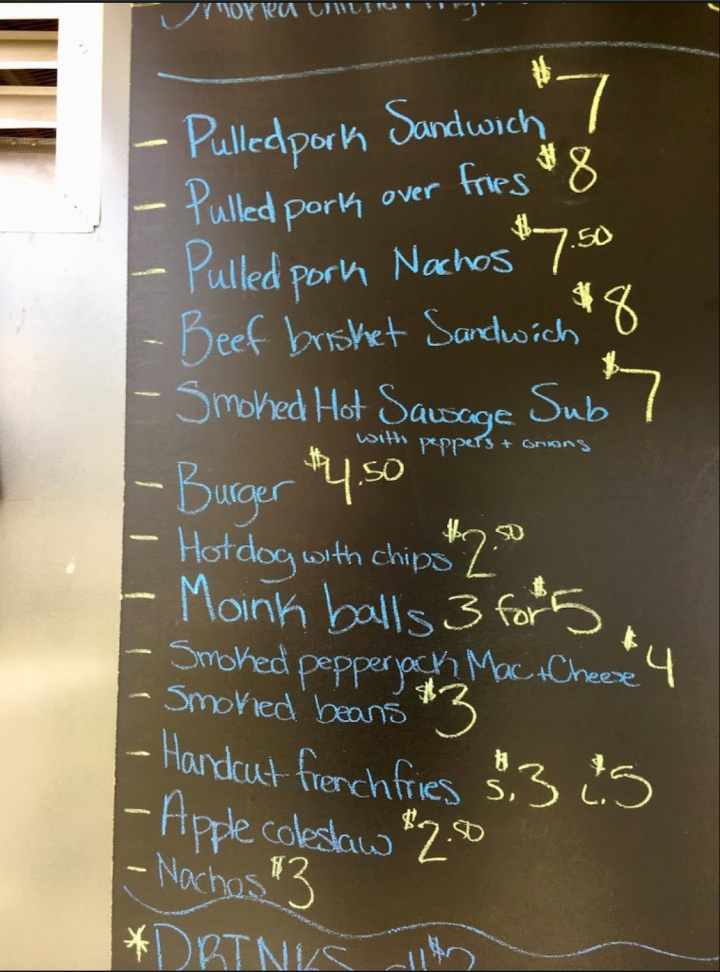 Smoked
- Pulled pork Sandwich $7
- Pulled pork over fries $8
- Pulled pork Nachos $7.50
- Beef brisket Sandwich $8
- Smoked Hot Sausage Sub $7
with peppers + onions
- Burger $4.50
- Hotdog with chips $2.50
- Moink balls 3 for $5
- Smoked pepperjack Mac + Cheese $4
- Smoked beans $3
- Handcut french fries s. $3 L. $5
- Apple coleslaw $2.50
- Nachos $3
* DRINKS all $2